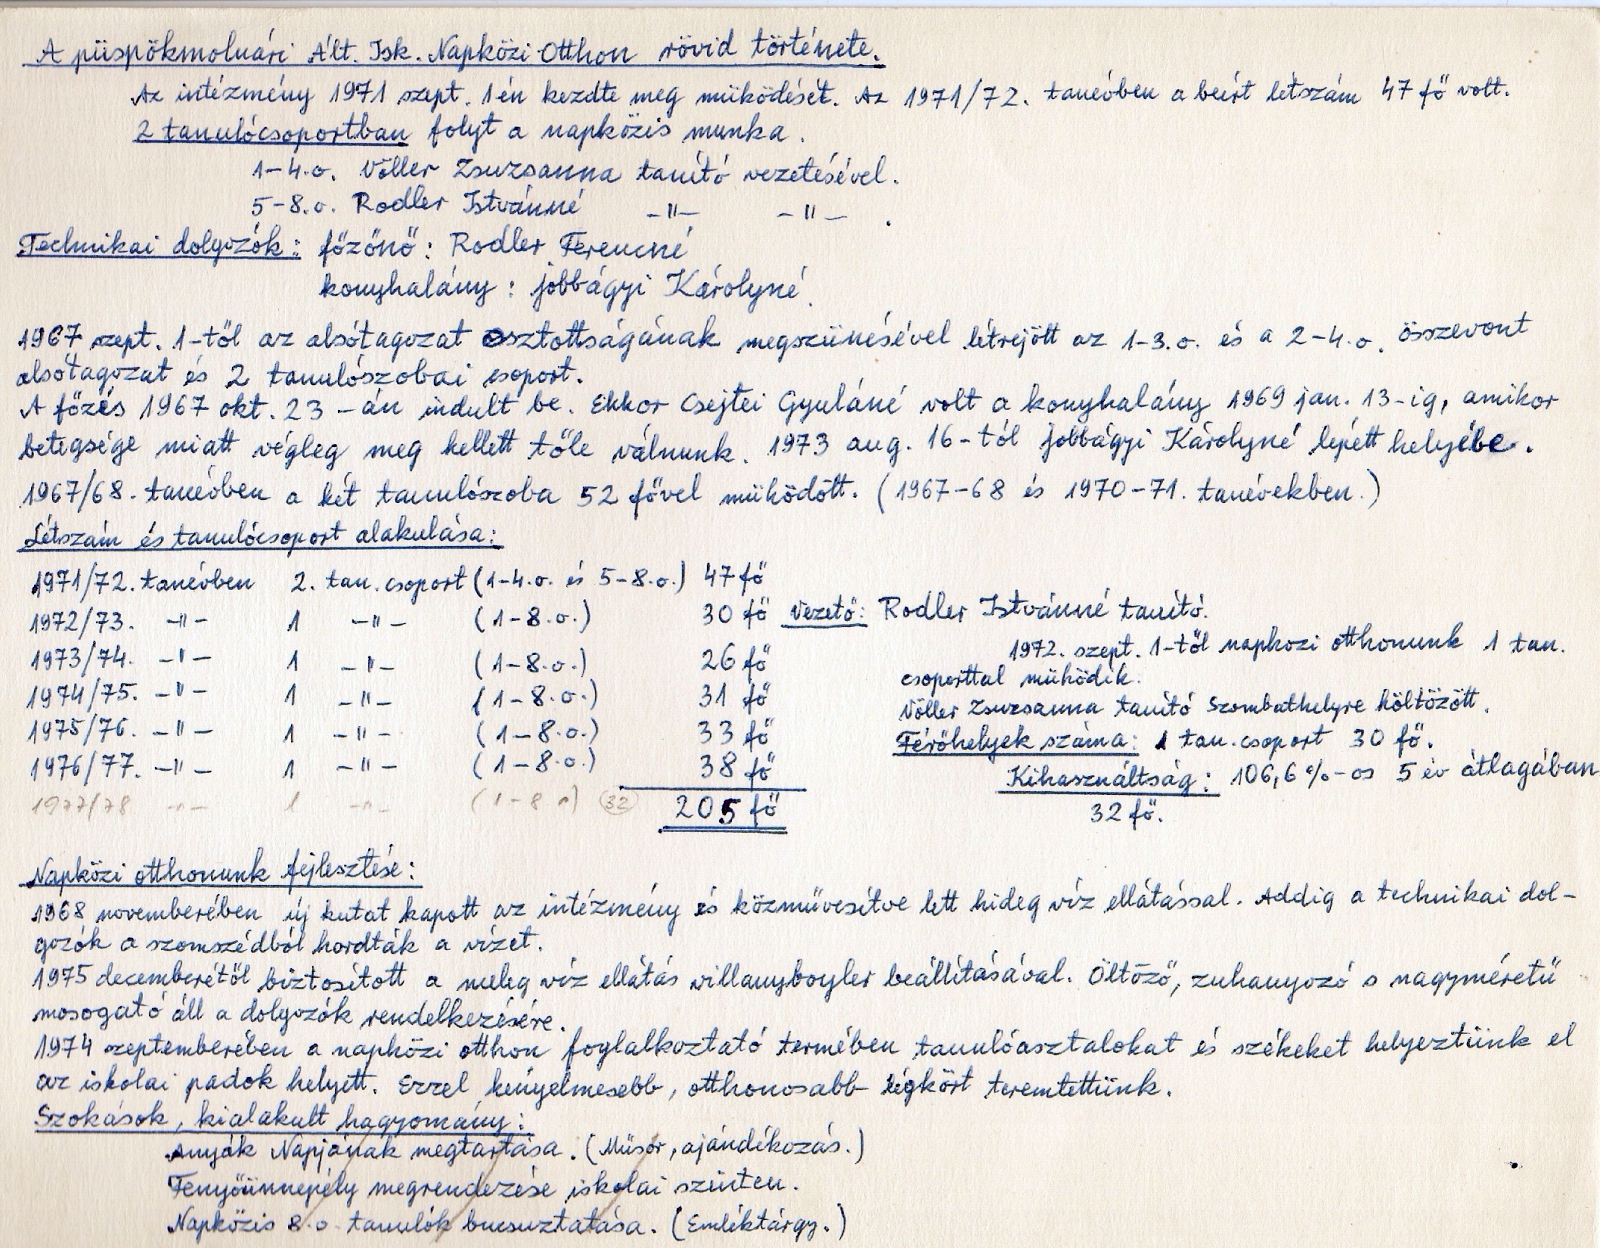 A püspökmolnári Ált. Isk. Napközi Otthon rövid története.
Az intézmény 1971 szept. 1én kezdte meg müködését. Az 1971/72. tanévben a beírt létszám 47 fő volt.
2 tanulócsoportban folyt a napközis munka.
1-4.o. Völler Zsuzsanna tanító vezetésével.
5-8.o. Rodler Istvánné -"- -"- .
Technikai dolgozók: főzőnő: Rodler Ferencné
konyhalány: Jobbágyi Károlyné.
1967 szept. 1-től az alsótagozat osztottságának megszünésével létrejött az 1-3.o. és a 2-4.o. összevont
alsótagozat és 2 tanulószobai csoport.
A főzés 1967 okt. 23-án indult be. Ekkor Csejtei Gyuláné volt a konyhalány 1969 jan. 13-ig, amikor
betegsége miatt végleg meg kellett tőle válnunk. 1973 aug. 16-tól Jobbágyi Károlyné lépett helyébe.
1967/68. tanévben a két tanulószoba 52 fővel müködött. (1967-68 és 1970-71. tanévekben.)
Létszám és tanulócsoport alakulása:
1971/72. tanévben 2. tan. csoport (1-4.o. és 5-8.o.) 47 fő
1972/73. -"- 1 -"- (1-8.o.) 30 fő Vezető: Rodler Istvánné tanító.
1973/74. -"- 1 -"- (1-8.o.) 26 fő
1974/75. -"- 1 -"- (1-8.o.) 31 fő
1975/76. -"- 1 -"- (1-8.o.) 33 fő
1976/77. -"- 1 -"- (1-8.o.) 38 fő
1977/78 -"- 1 -"- (1-8 o) 32
205 fő
1972. szept. 1-től napközi otthonunk 1 tan.
csoporttal müködik.
Völler Zsuzsanna tanító Szombathelyre költözött.
Férőhelyek száma: 1 tan. csoport 30 fő.
Kihasználtság: 106,6%-os 5 év átlagában
32 fő.
Napközi otthonunk fejlesztése:
1968 novemberében új kutat kapott az intézmény és közművesítve lett hideg víz ellátással. Addig a technikai dol-
gozók a szomszédból hordták a vizet.
1975 decemberétől biztosított a meleg víz ellátás villanyboyler beállításával. Öltöző, zuhanyozó s nagyméretű
mosogató áll a dolgozók rendelkezésére.
1974 szeptemberében a napközi otthon foglalkoztató termében tanulóasztalokat és székeket helyeztünk el
az iskolai padok helyett. Ezzel kényelmesebb, otthonosabb légkört teremtettünk.
Szokások, kialakult hagyomány:
Anyák Napjának megtartása. (Műsor, ajándékozás.)
Fenyőünnepély megrendezése iskolai szinten.
Napközis 8.o. tanulók bucsuztatása. (Emléktárgy.)